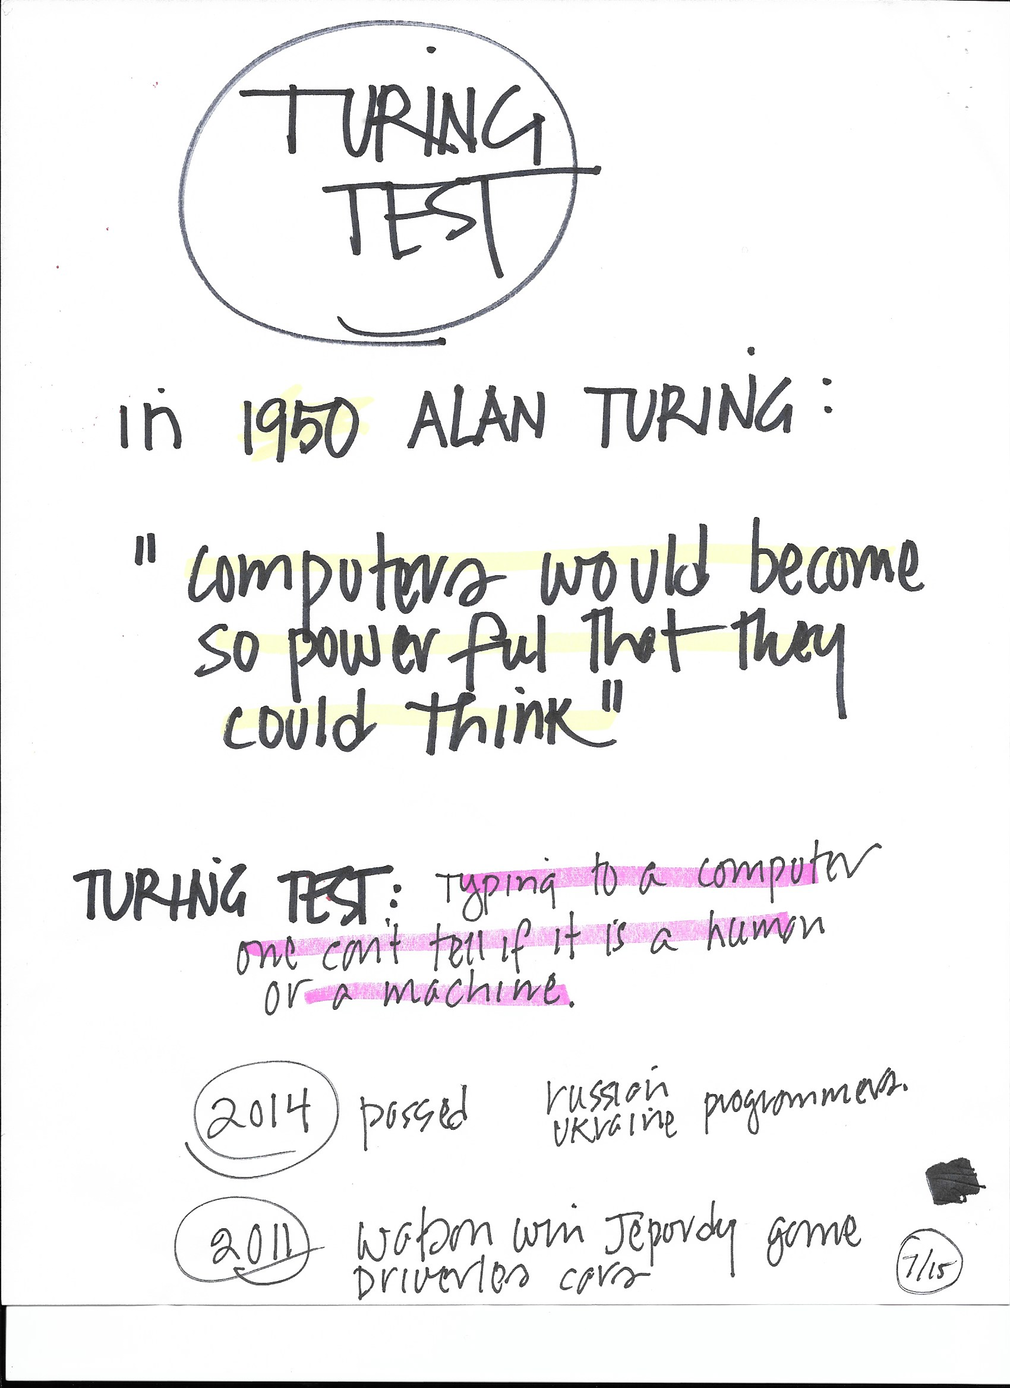 TURING
TEST
in 1950 ALAN TURING:
"computers would become
so powerful that they
could think"
TURING TEST: Typing to a computer
one can't tell if it is a human
or a machine.
2014 passed russian
ukraine programmers.
2011 watson win Jepordy game
Driverless cars
7/15